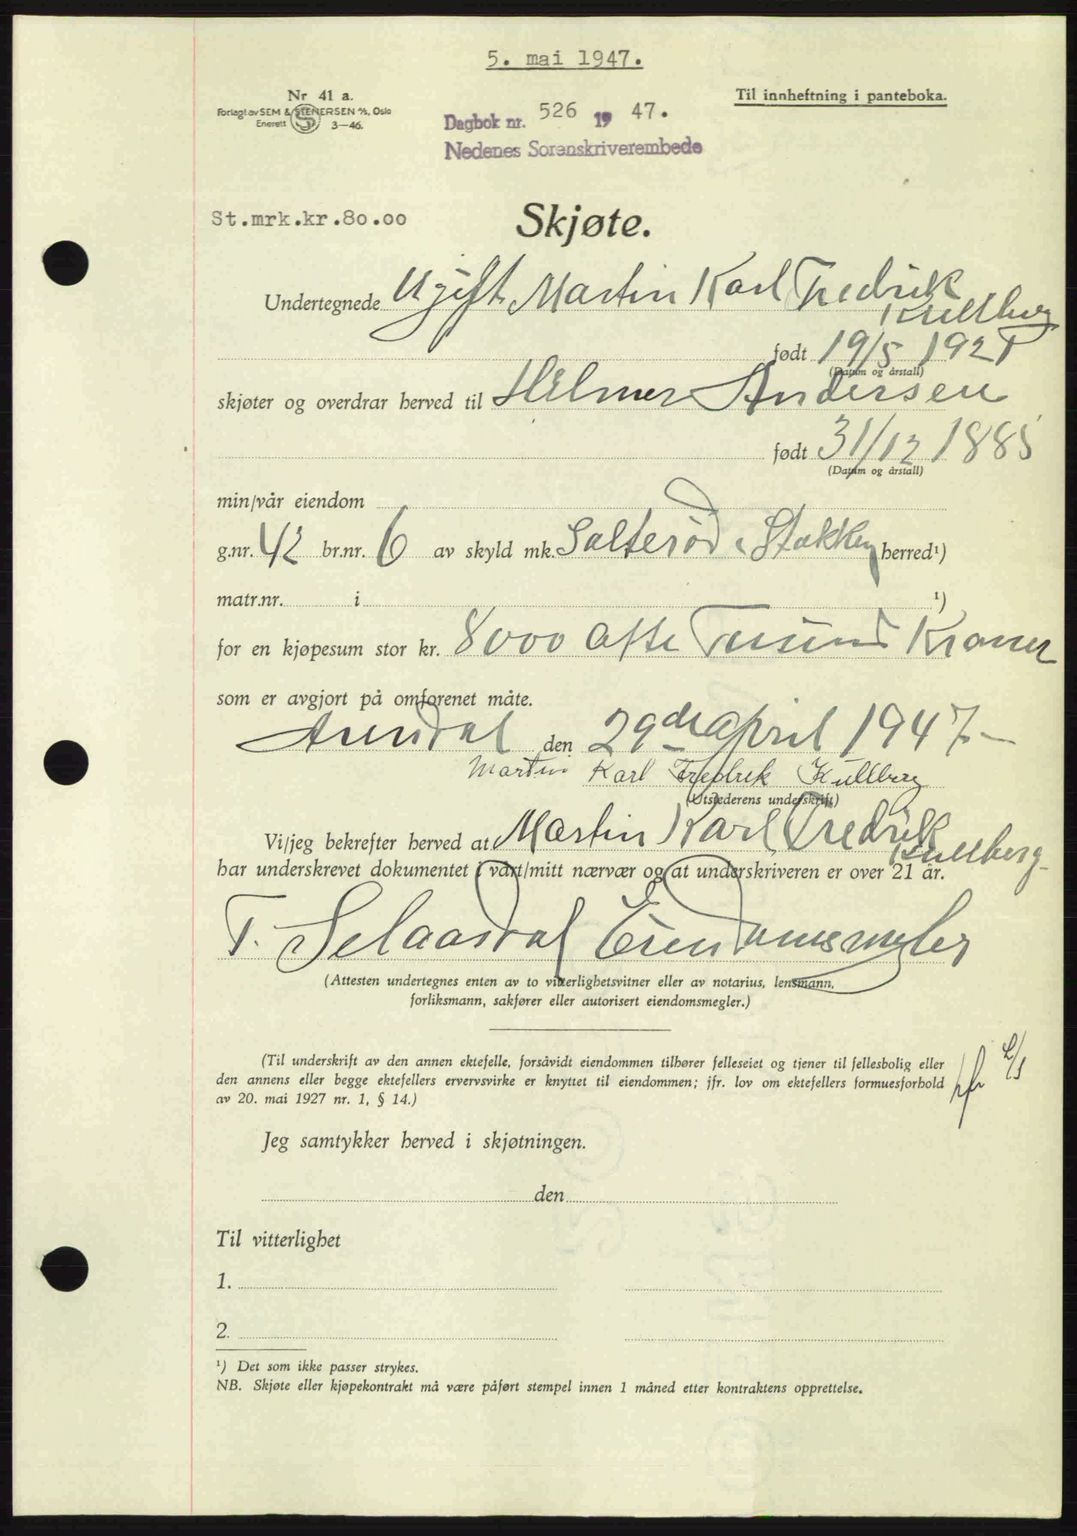 5. mai 1947.
Nr 41 a.
Forlagt av SEM & STENERSEN A/S, Oslo
Enerett 3—46.
Til innheftning i panteboka.
Dagbok nr. 526 1947.
Nedenes Sorenskriverembede
St.mrk.kr.80.00
Skjøte.
Undertegnede Ugift Martin Karl Fredrik
Kullberg
født 19/5 1921
(Datum og årstall)
skjøter og overdrar herved til Hilmer Andersen
født 31/12 1885
(Datum og årstall)
min/vår eiendom
g.nr. 42 br.nr. 6 av skyld mk. Salterød i Stokken herred¹)
matr.nr. i ¹)
for en kjøpesum stor kr. 8000 Otte Tusund Kroner
som er avgjort på omforenet måte.
Arendal den 29de April 1947 —
Martin Karl Fredrik Kullberg
(Utstederens underskrift)
Vi/jeg bekrefter herved at Martin Karl Fredrik
Kullberg
har underskrevet dokumentet i vårt/mitt nærvær og at underskriveren er over 21 år.
T. Selaasdal Eiendomsmegler
(Attesten undertegnes enten av to vitterlighetsvitner eller av notarius, lensmann,
forliksmann, sakfører eller autorisert eiendomsmegler.)
(Til underskrift av den annen ektefelle, forsåvidt eiendommen tilhører felleseiet og tjener til fellesbolig eller
den annens eller begge ektefellers ervervsvirke er knyttet til eiendommen; jfr. lov om ektefellers formuesforhold
av 20. mai 1927 nr. 1, § 14.)
Jeg samtykker herved i skjøtningen.
den
Til vitterlighet
1.
2.
¹) Det som ikke passer strykes.
NB. Skjøte eller kjøpekontrakt må være påført stempel innen 1 måned etter kontraktens opprettelse.